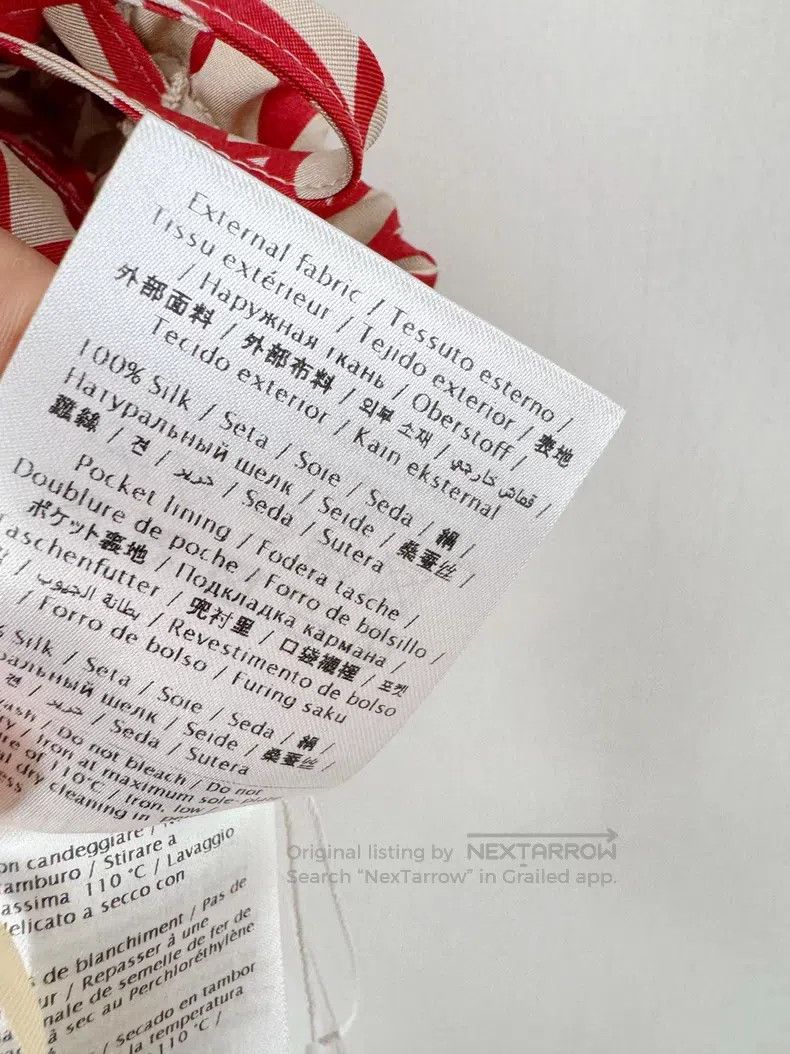 External fabric / Tessuto esterno /
Tissu extérieur / Tejido exterior / 表地
/ Наружная ткань / Oberstoff /
外部面料 / 外部布料 / 외부 소재 / قماش خارجي /
Tecido exterior / Kain eksternal
100% Silk / Seta / Soie / Seda / 絹 /
Натуральный шелк / Seide / 桑蚕丝 /
蠶絲 / 견 / حرير / Seda / Sutera
Pocket lining / Fodera tasche /
Doublure de poche / Forro de bolsillo /
ポケット裏地 / Подкладка кармана /
Taschenfutter / 兜衬里 / 口袋襯裡 / 포켓
/ بطانة الجيوب / Revestimento de bolso
/ Forro de bolso / Furing saku
% Silk / Seta / Soie / Seda / 絹 /
ральный шелк / Seide / 桑蚕丝 /
견 / حرير / Seda / Sutera
wash / Do not bleach / Do not
ry / Iron at maximum sole
re of 110°C / Iron, low
al dry cleaning in
ess
on candeggiare /
amburo / Stirare a
assima 110 °C / Lavaggio
elicato a secco con
de blanchiment / Pas de
ur / Repasser à une
nale de semelle de fer de
à sec au Perchloréthylène
/ Secado en tambor
la temperatura
110 °C /
Original listing by NEXTARROW
Search “NexTarrow” in Grailed app.